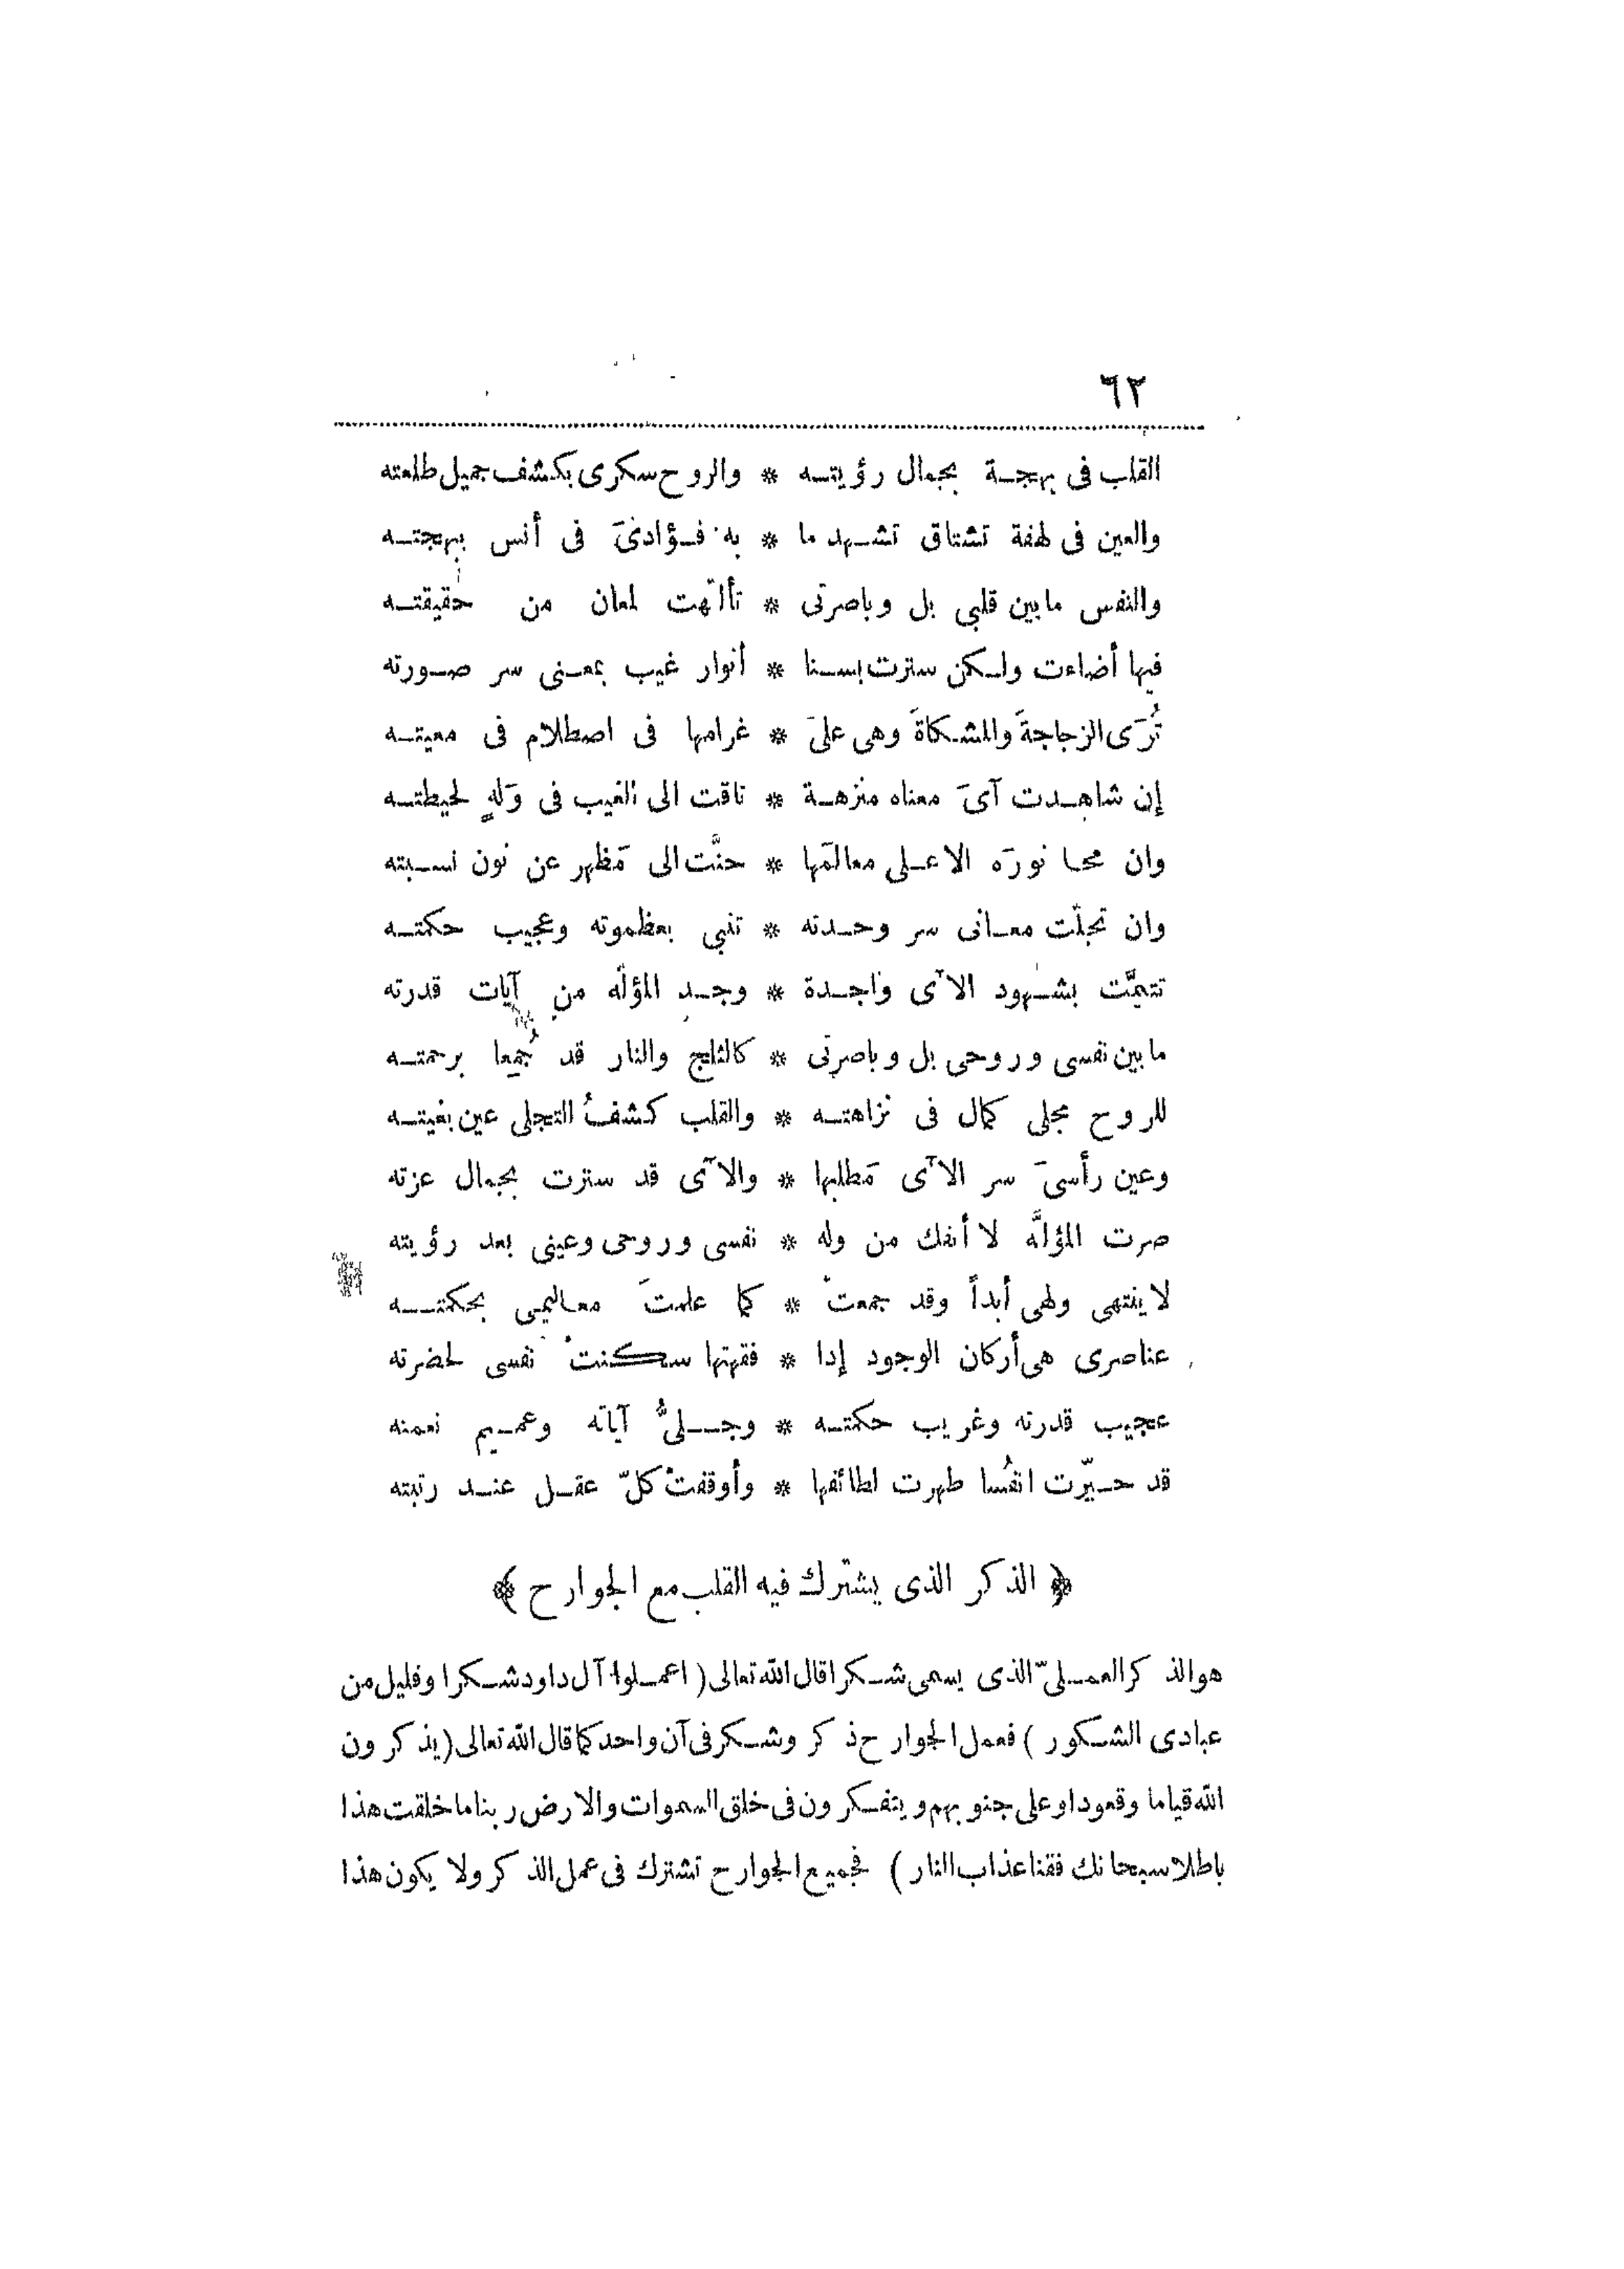 ٦٢
القلب فى بهجة بجمال رؤيته * والروح سكرى بكشف جميل طلعته
والعين فى لهفة تشتاق تشهد ما * به فؤادىَ فى أنس ببهجته
والنفس مابين قلبى بل وباصرتى * تألّهت لمعان من حقيقته
فيها أضاءت ولكن سترت بسنا * أنوار غيب بمعنى سر صورته
تُرَى الزجاجةَ والمشكاةَ وهى علىَ * غرامها فى اصطلام فى معيته
إن شاهدت آىَ معناه منزهة * تاقت الى الغيب فى وَلهٍ لحيطته
وان محا نورَه الاعلى معالمَها * حنَّت الى مَظهر عن نون نسبته
وان تجلّت معانى سر وحدته * تنبى بعظموته وعجيب حكمته
تتيمَّت بشهود الآى واجدة * وجدِ المؤلّه من آيات قدرته
مابين نفسى وروحى بل وباصرتى * كالثلج والنار قد جُمِعا برحمته
للروح مجلى كمال فى نزاهته * والقلب كشفُ التجلى عين بغيته
وعين رأسىَ سر الآى مَطلبها * والآى قد سترت بجمال عزته
صرت المؤلَّه لا أنفك من وله * نفسى وروحى وعينى بعد رؤيته
لاينتهى ولهى أبداً وقد جمعتْ * كما علمتَ معاليمى بحكمته
عناصرى هى أركان الوجود إذا * فقهتها سكنتْ نفسى لحضرته
عجيب قدرته وغريب حكمته * وجلىُّ آياته وعميم نعمته
قد حيّرت انفُسا طهرت لطائفها * وأوقفتْ كلّ عقل عند رتبته
﴿ الذكر الذى يشترك فيه القلب مع الجوارح ﴾
هو الذكر العملىّ الذى يسمى شكرا قال الله تعالى ( اعملوا آل داود شكرا وقليل من
عبادى الشكور ) فعمل الجوارح ذكر وشكر فى آن واحد كما قال الله تعالى ( يذكرون
الله قياما وقعودا وعلى جنوبهم ويتفكرون فى خلق السموات والارض ربنا ما خلقت هذا
باطلا سبحانك فقنا عذاب النار ) فجميع الجوارح تشترك فى عمل الذكر ولا يكون هذا